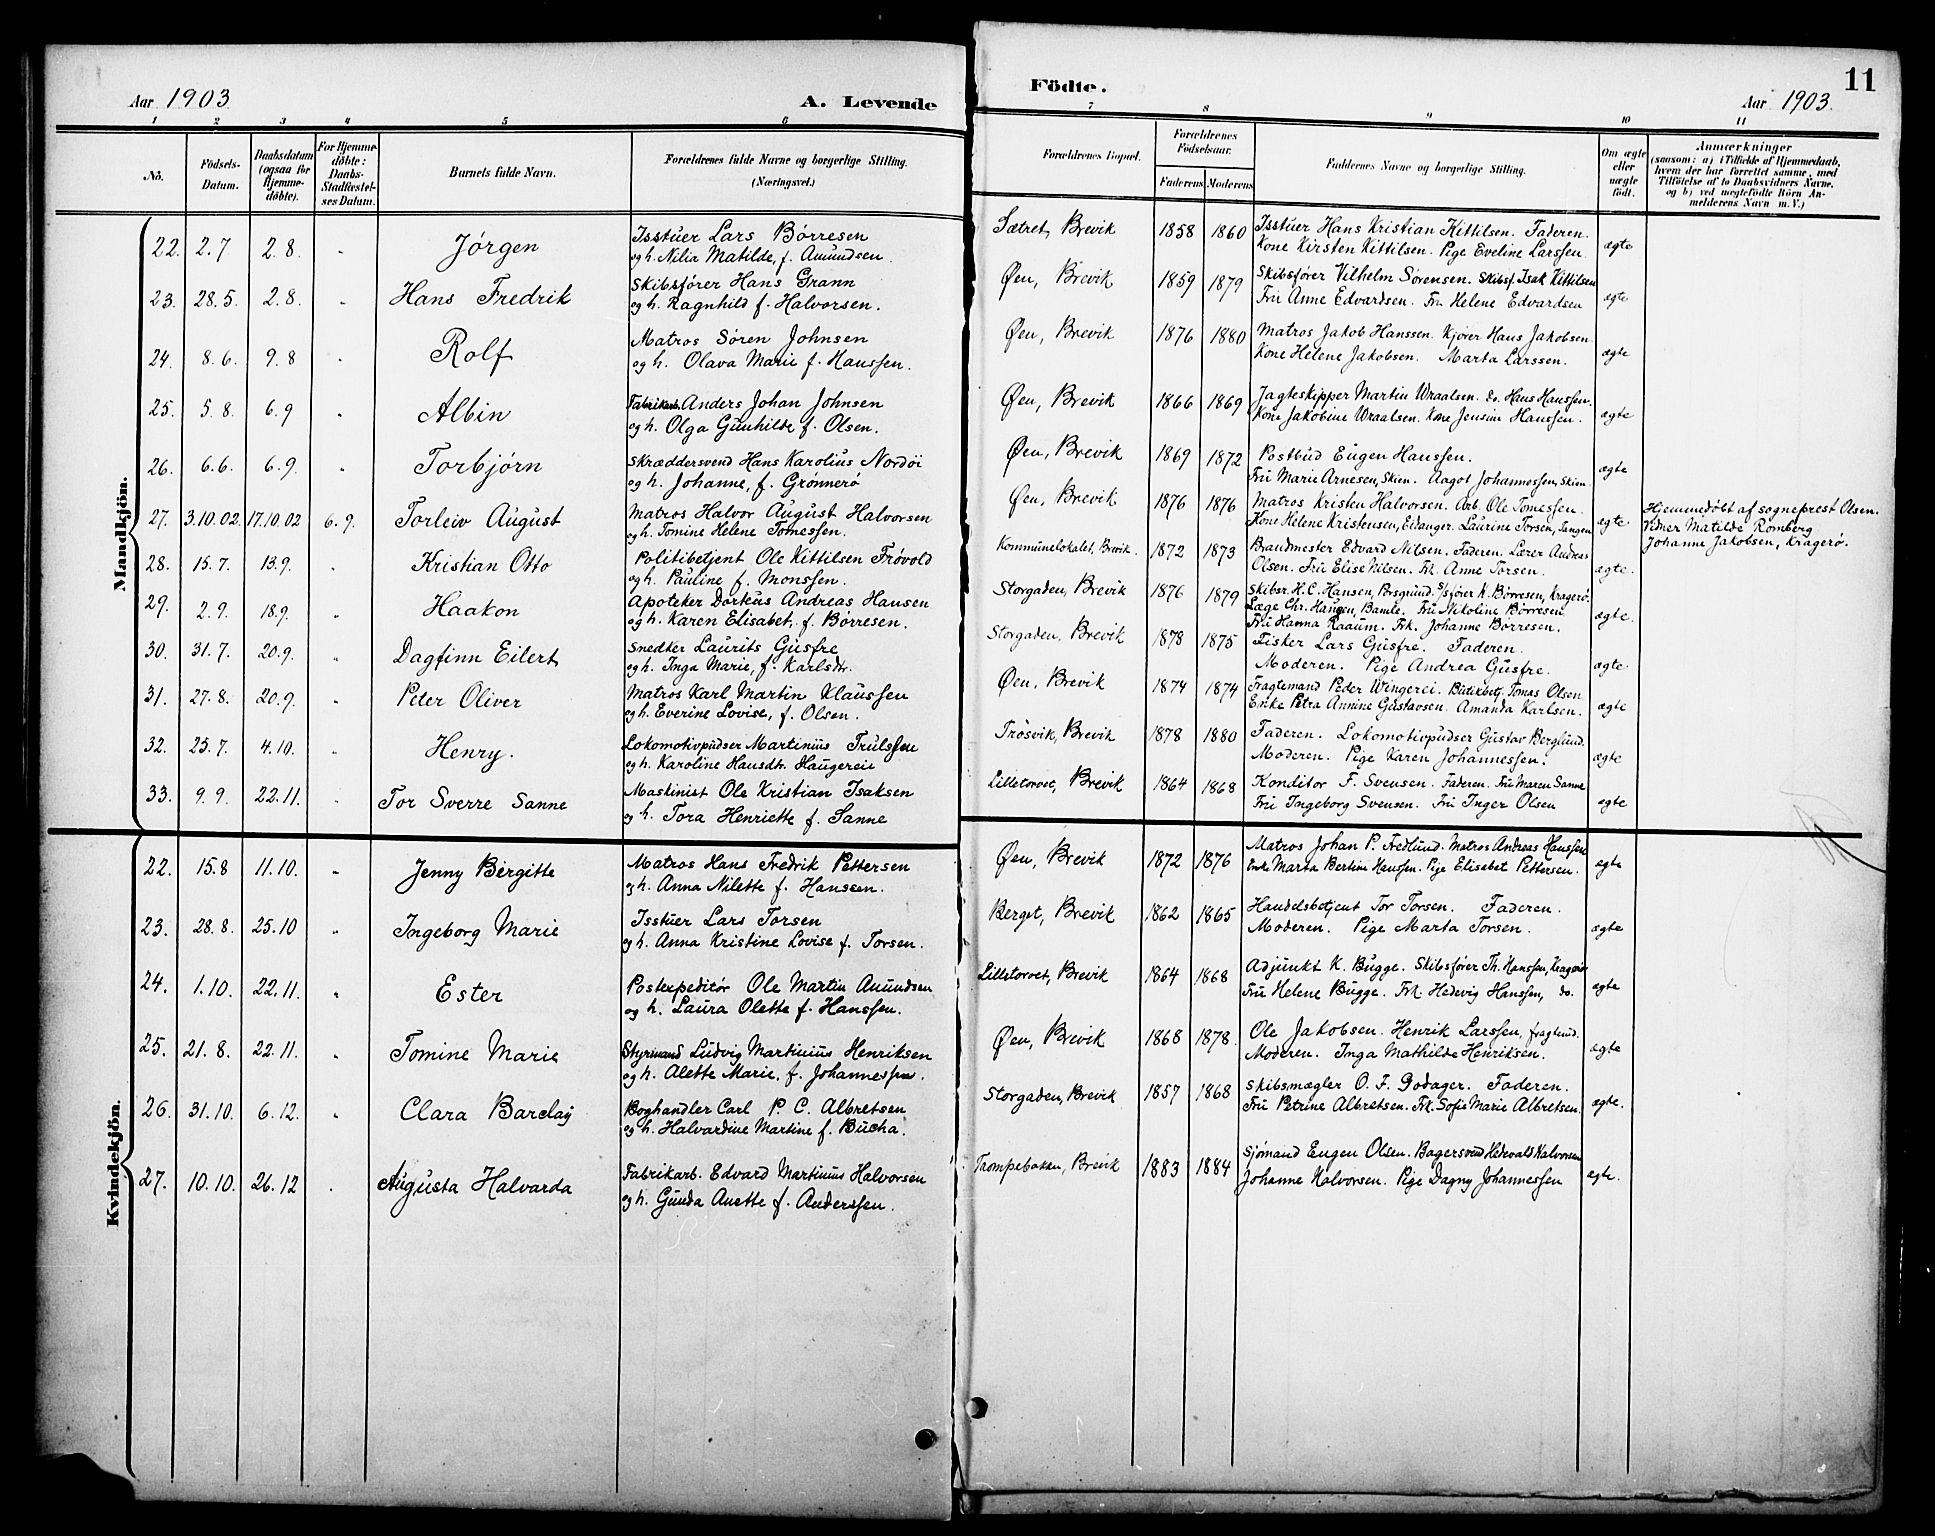 Aar 1903
A. Levende
1 2 3 4 5 6
No. Födsels-Datum. Daabsdatum (ogsaa for Hjemmedöbte). For Hjemmedöbte: Daabs-Stadfæstelses Datum. Barnets fulde Navn. Forældrenes fulde Navne og borgerlige Stilling. (Næringsvei.)
Mandkjön.
22. 2.7 2.8. " Jørgen Isstuer Lars Børresen
og h. Nilia Matilde, f. Amundsen.
23. 28.5. 2.8. " Hans Fredrik Skibsfører Hans Grann
og h. Ragnhild f. Halvorsen.
24. 8.6. 9.8 " Rolf Matros Søren Johnsen
og h. Olava Marie f. Hanssen.
25. 5.8. 6.9 " Albin Fabrikarb. Anders Johan Johnsen
og h. Olga Gunhilde f. Olsen.
26. 6.6. 6.9. " Torbjørn Skræddersvend Hans Karolius Nordöi
og h. Johanne, f. Grønnerø
27. 3.10.02. 17.10.02 6.9. Torleiv August Matros Halvor August Halvorsen
og h. Tomine Helene Tomessen.
28. 15.7. 13.9. " Kristian Otto Politibetjent Ole Kittilsen Trøvold
og h. Pauline f. Monssen.
29. 2.9. 18.9. " Haakon Apoteker Dorkus Andreas Hansen
og h. Karen Elisabet f. Børresen.
30. 31.7. 20.9. " Dagfinn Eilert Snedker Laurits Gusfre
og h. Inga Marie, f. Karlsdtr.
31. 27.8. 20.9. " Peter Oliver Matros Karl Martin Klaussen
og h. Everine Lovise, f. Olsen.
32. 25.7. 4.10. " Henry. Lokomotivpudser Martinius Trulssen
og h. Karoline Hansdtr. Haugerei
33. 9.9. 22.11. " Tor Sverre Sanne Maskinist Ole Kristian Isaksen
og h. Tora Henriette f. Sanne
Kvindekjön.
22. 15.8 11.10. " Jenny Birgitte Matros Hans Fredrik Pettersen
og h. Anna Nilette f. Hanssen.
23. 28.8. 25.10 " Ingeborg Marie Isstuer Lars Torsen
og h. Anna Kristine Lovise f. Torsen.
24. 1.10. 22.11. " Ester Postexpeditør Ole Martin Amundsen
og h. Laura Olette f. Hanssen.
25. 21.8. 22.11. " Tomine Marie Styrmand Ludvig Martinius Henriksen
og h. Alette Marie, f. Johannessen.
26. 31.10. 6.12. " Clara Barclay Boghandler Carl P. C. Albretsen
og h. Halvardine Martine f. Bucha.
27. 10.10. 26.12 . Augusta Halvarda Fabrikarb. Edvard Martinius Halvorsen
og h. Gunda Anette f. Anderssen.
Födte.
11
Aar 1903.
7 8 9 10 11
Forældrenes Bopæl. Forældrenes Födselsaar. Faderens Moderens Faddernes Navne og borgerlige Stilling. Om ægte eller uægte födt. Anmærkninger (saasom: a) i Tilfælde af Hjemmedaab, hvem der har forrettet samme, med Tilföielse af to Daabsvidners Navne, og b) ved uægtefödte Börn Anmelderens Navn m. V.)
Sætret, Brevik 1858 1860 Isstuer Hans Kristian Kittilsen. Faderen.
Kone Kirsten Kittilsen. Pige Eveline Larssen. ægte
Øen, Brevik 1859 1879 Skibsfører Vilhelm Sørensen. Skibsf. Isak Kittilsen
Fru Anne Edvardsen. Fru Helene Edvardsen ægte
Øen, Brevik 1876 1880 Matros Jakob Hanssen. Kjører Hans Jakobsen
Kone Helene Jakobsen. Marta Larssen. ægte
Øen, Brevik 1866 1869 Jagteskipper Martin Wraalsen. do. Hans Hanssen.
Kone Jakobine Wraalsen. Kone Jensine Hanssen. ægte
Øen, Brevik 1869 1872 Postbud Eugen Hanssen.
Fru Marie Arnesen, Skien. Aagot Johannessen, Skien. ægte
Øen, Brevik 1876 1876 Matros Kristen Halvorsen. Arb. Ole Tomessen.
Kone Helene Kristensen, Eidanger. Laurine Torsen, Langen ægte
Hjemmedøbt af sogneprest Olsen.
Vidner Matilde Romberg
Johanne Jakobsen, Kragerø.
Kommunelokalet, Brevik. 1872 1873 Brandmester Edvard Nilsen. Faderen. Lærer Andreas
Olsen. Fru Elise Nilsen. Frk. Anne Torsen. ægte.
Storgaden, Brevik 1876 1879 Skibsr. H. C. Hansen, Porsgrund. S/sfører K. Børresen, Kragerø.
Læge Chr. Haugen, Bamle. Fru Nikoline Børresen
Fru Hanna Raaum. Frk. Johanne Børresen. ægte.
Storgaden, Brevik 1878 1875 Fisker Lars Gusfre. Faderen.
Moderen. Pige Andrea Gusfre. ægte
Øen, Brevik 1874 1874 Fragtemand Peder Wingerei. Butikbetj. Tomas Olsen
Enke Petra Annine Gustavsen. Amanda Karlsen. ægte
Trosvik, Brevik 1878 1880 Faderen. Lokomotivpudser Gustav Berglund.
Moderen. Pige Karen Johannessen. ægte
Lilletorvet, Brevik 1864 1868 Konditor F. Svensen. Faderen. Fru Maren Sanne
Fru Ingeborg Svensen. Fru Inger Olsen ægte
Øen, Brevik 1872 1876 Matros Johan P. Fredlund. Matros Andreas Hanssen
Enke Marta Bertine Hanssen. Pige Elisabet Pettersen. ægte
Berget, Brevik 1862 1865 Handelsbetjent Tor Torsen. Faderen.
Moderen. Pige Marta Torsen. ægte
Lilletorvet, Brevik 1864 1868 Adjunkt K. Bugge. Skibsfører Th. Hanssen, Kragerø
Fru Helene Bugge. Frk. Hedevig Hanssen, do. ægte
Øen, Brevik 1868 1878. Ole Jakobsen. Henrik Larssen, fragtmd.
Moderen. Inga Mathilde Henriksen. ægte
Storgaden, Brevik 1857 1868 Skibsmægler O. F. Godager. Faderen.
Fru Petrine Albretsen. Frk. Sofie Marie Albretsen. ægte.
Trompebakken, Brevik 1883 1884 Sjømand Eugen Olsen. Bagersvend Hedevald Halvorsen
Johanne Halvorsen. Pige Dagny Johannessen ægte.